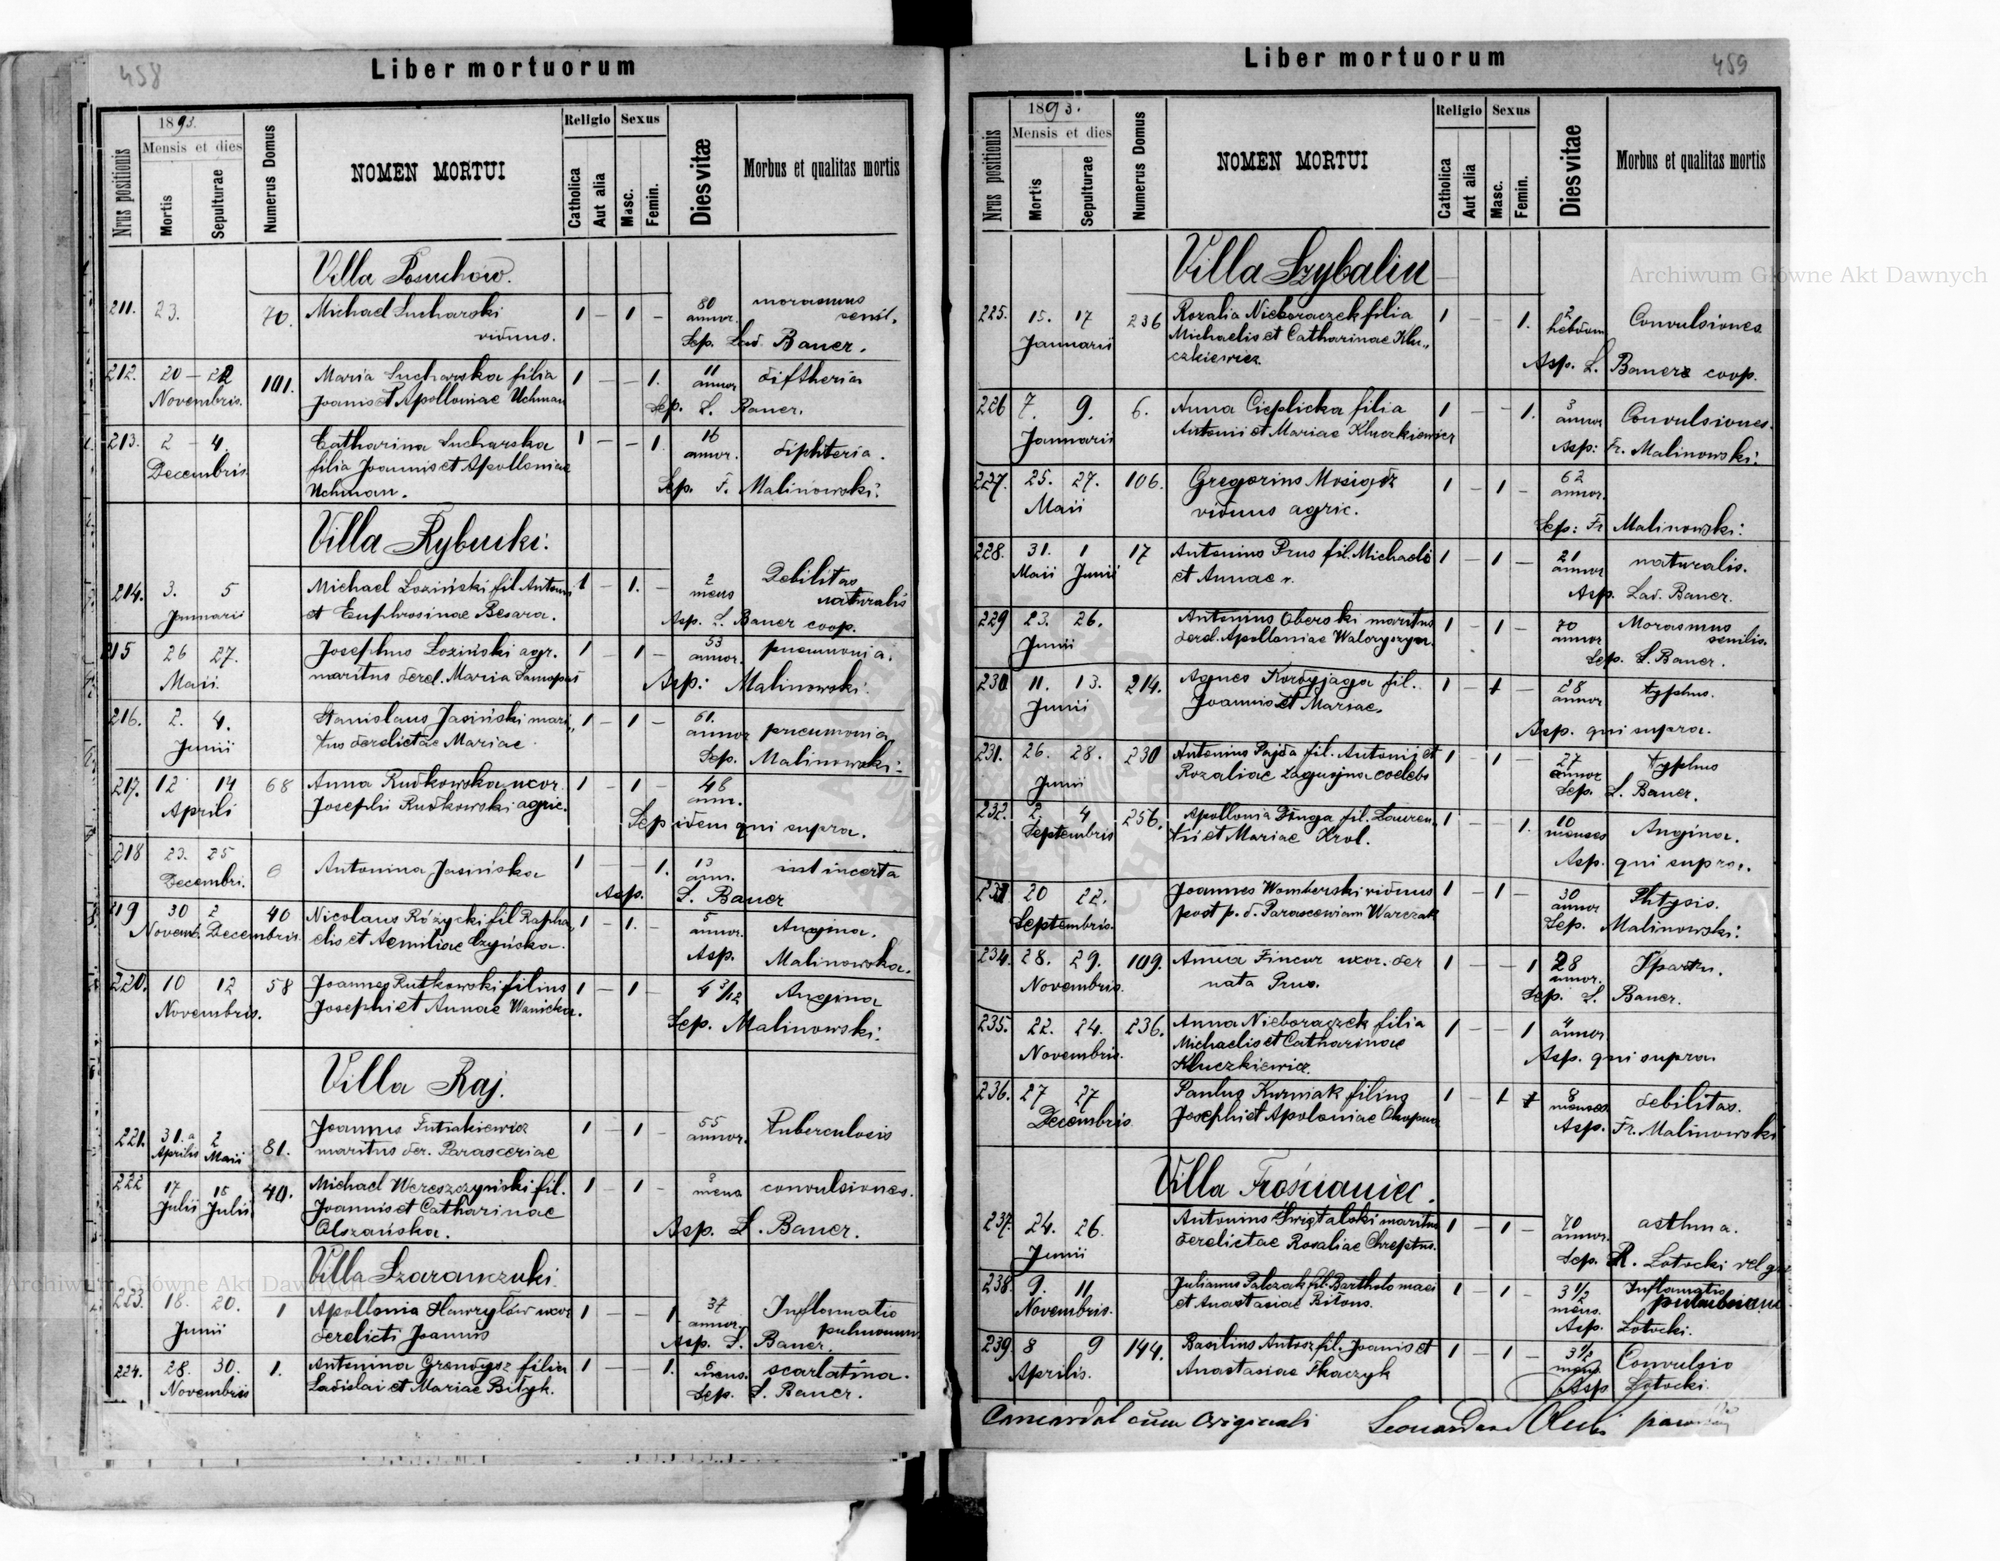 458
Liber mortuorum
Nrus positionis
1893.
Mensis et dies
Mortis
Sepulturae
Numerus Domus
NOMEN MORTUI
Religio
Catholica
Aut alia
Sexus
Masc.
Femin.
Dies vitæ
Morbus et qualitas mortis
Villa Posuchow.
211. 23. 70. Michael Sucharski 1 – 1 – 80 marasmus
viduus. annor. senil.
Sep. Lad. Bauer.
212. 20 – 22 101. Maria Sucharska filia 1 – – 1. 11 diftheria
Novembris. Joanis et Apolloniae Uchman annor
Sep. L. Bauer.
213. 2 – 4. Catharina Sucharska 1 – – 1. 16 diphteria.
Decembris filia Joannis et Apolloniae annor.
Uchman. Sep. F. Malinowski:
Villa Rybniki:
214. 3. 5 Michael Łoziński fil Antonii 1 – 1. – 2 Debilitas
Januarii et Euphrosinae Besara. mens naturalis
Asp. L. Bauer coop.
215 26 27. Josephus Łoziński agr. 1 – 1 – 53 pneumonia.
Maii. maritus derel. Maria annor.
Asp: Malinowski:
216. 2. 4. Stanislaus Jasiński mari 1 – 1 – 61. pneumonia
Junii tus derelictae Mariae annor
Sep. Malinowski:
217. 12 14 68 Anna Rudkowska uxor 1 – 1 – 48
Aprili Josephi Rudkowski agric. ann.
Sep idem qui supra.
218 23. 25 6 Antonina Jasińska 1 1. 13 int incerta
Decembri. ann.
Asp. L. Bauer
219 30 2 40 Nicolaus Różycki fil Rapha 1 – 1. – 5 Angina.
Novemb. Decembris elis et Aemiliae annor.
Asp. Malinowska.
220. 10 12 58 Joannes Rutkowski filius 1 – 1 – 4 3/12 Angina
Novembris. Josephi et Annae Wanicka.
Sep. Malinowski:
Villa Raj.
221. 31.a 2 81. Joannes 1 – 1 – 55 Tuberculosis
Aprilis Maii maritus der. Parasceviae annor.
222 17 18 40. Michael Wereszczyński fil. 1 – 1 – mens convulsiones.
Julii Julii Joannis et Catharinae
Olszańska. Asp. L. Bauer.
Villa Szaranczuki.
223. 18. 20. 1 Apollonia Hawryłów uxor 1 – – 1 37 Inflamatio
Junii derelicti Joannis annor. pulmonum
Asp. L. Bauer.
224. 28. 30. 1. Antonina filia 1 – – 1. 6 scarlatina.
Novembris Ladislai et Mariae Biłyk. mens.
Sep. L. Bauer.
459
Liber mortuorum
Nrus positionis
1893.
Mensis et dies
Mortis
Sepulturae
Numerus Domus
NOMEN MORTUI
Religio
Catholica
Aut alia
Sexus
Masc.
Femin.
Dies vitae
Morbus et qualitas mortis
Villa Szybalin
225. 15. 17 236 Rozalia Nieboraczek filia 1 – 1. 2 Convulsiones
Januarii Michaelis et Catharinae Klu„ hebdom
czkiewicz. Asp. L. Bauer coop.
226 7. 9. 6. Anna Cieplicka filia 1 – – 1. 3 Convulsiones.
Januarii Antonii et Mariae Kluczkiewicz annor
Asp: Fr. Malinowski:
227. 25. 27. 106. Gregorius 1 – 1 – 62
Maii viduus agric. annor.
Sep: Fr Malinowski:
228. 31. 1 17 Antonius Prus fil. Michaeli 1 – 1 – 21 naturalis.
Maii Junii et Annae annor
Asp. Lad. Bauer.
229 23. 26. Antonius Oberski maritus 1 – 1 – 70 Marasmus
Junii derel. Apolloniae annor senilis.
Sep. L. Bauer.
230 11. 13. 214. Agnes fil. 1 – 1 – 28 typhus.
Junii Joannis et Mariae. annor
Asp. qui supra.
231. 26. 28. 230 Antonius Pajda fil. Antonij et 1 – 1 – 27 typhus
Junii Rozaliae coelebs annor
Sep. L. Bauer.
232. 2. 4 256. Apollonia fil. Lauren„ 1 – 1. 10 Angina.
Septembris tii et Mariae Krol. menses
Asp. qui supra.
20 22. Joannes Womberski viduus 1 – 1 – 30 Phtysis.
Septembris. post p. d. Parasceviam Warczak annor
Sep. Malinowski:
234. 28. 29. 109. Anna Fincur uxor. der 1 – – 1 28
Novembris. nata Prus. annor.
Sep. L. Bauer.
235. 22. 24. 236. Anna Nieboraczek filia 1 – – 1 4
Novembris. Michaelis et Catharinae annor
Kluczkiewicz. Asp. qui supra
236. 27 27 Paulus Kurniak filius 1 – 1 8 debilitas.
Decembris. Josephi et Apoloniae menses.
Asp. Fr. Malinowski
Villa Trościaniec.
237. 24. 26. Antonius maritus 1 – 1 – 70 asthma.
Junii derelictae Rosaliae annor.
Sep. R. Łotocki
238. 9. 11. Julianus Palczak fil. Bartholomaei 1 – 1 – 3 1/2 Inflamatio
Novembris. et Anastasiae mens.
Asp. Łotocki.
239. 8 9 144. Basilius Antosz fil. Joanis et 1 – 1 – 3 1/2 Convulsio
Aprilis. Anastasiae Tkaczyk mens
Asp Łotocki.
Concordat cum Originali
Archiwum Główne Akt Dawnych
Archiwum Główne Akt Dawnych